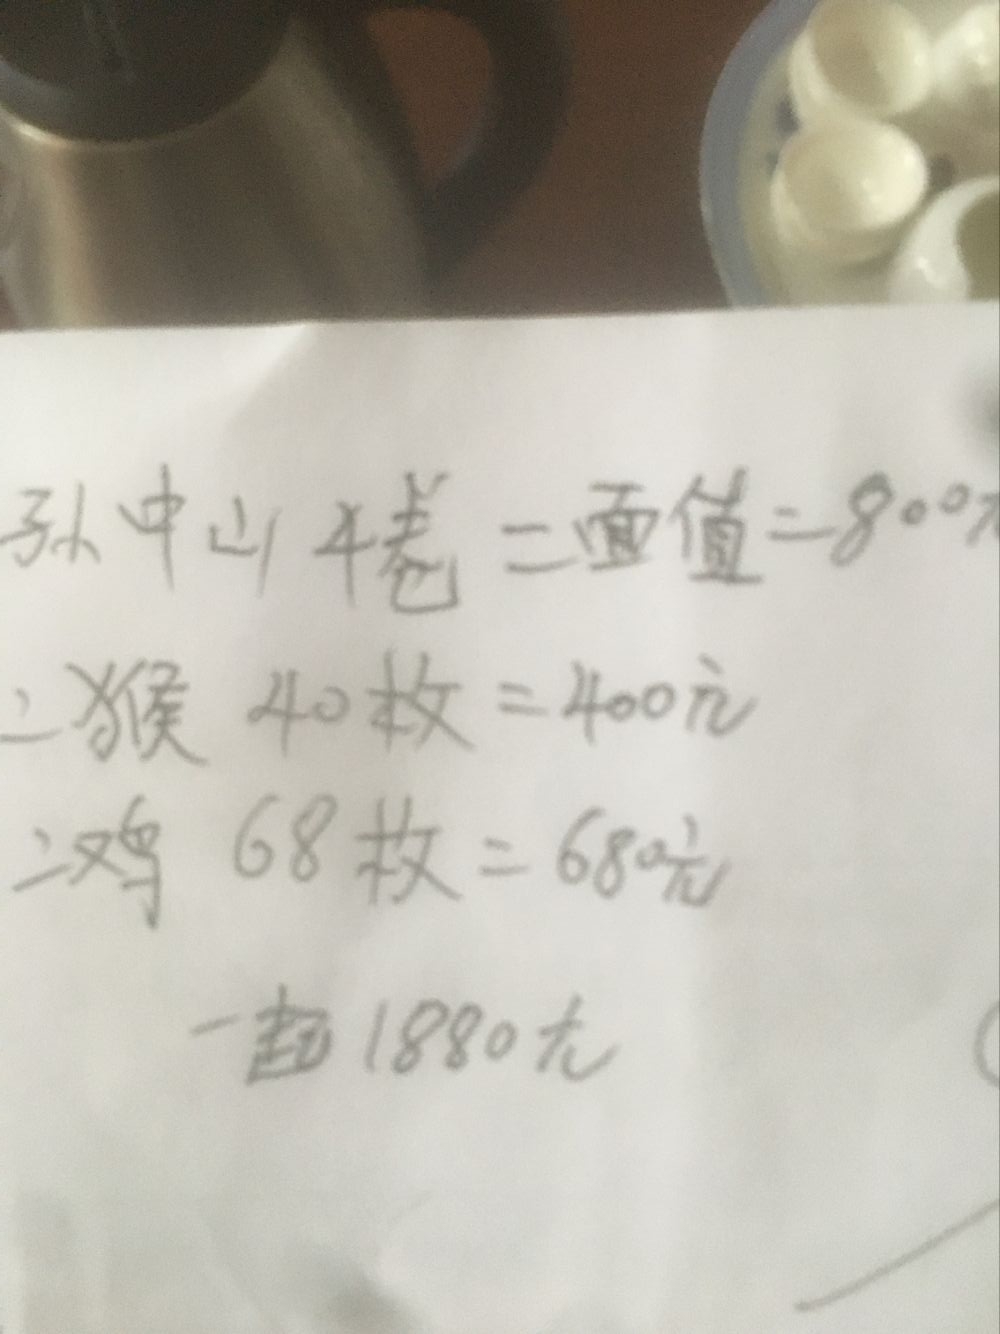 孙中山4卷=面值=800元
二猴 40枚=400元
二鸡 68枚=680元
一起1880元